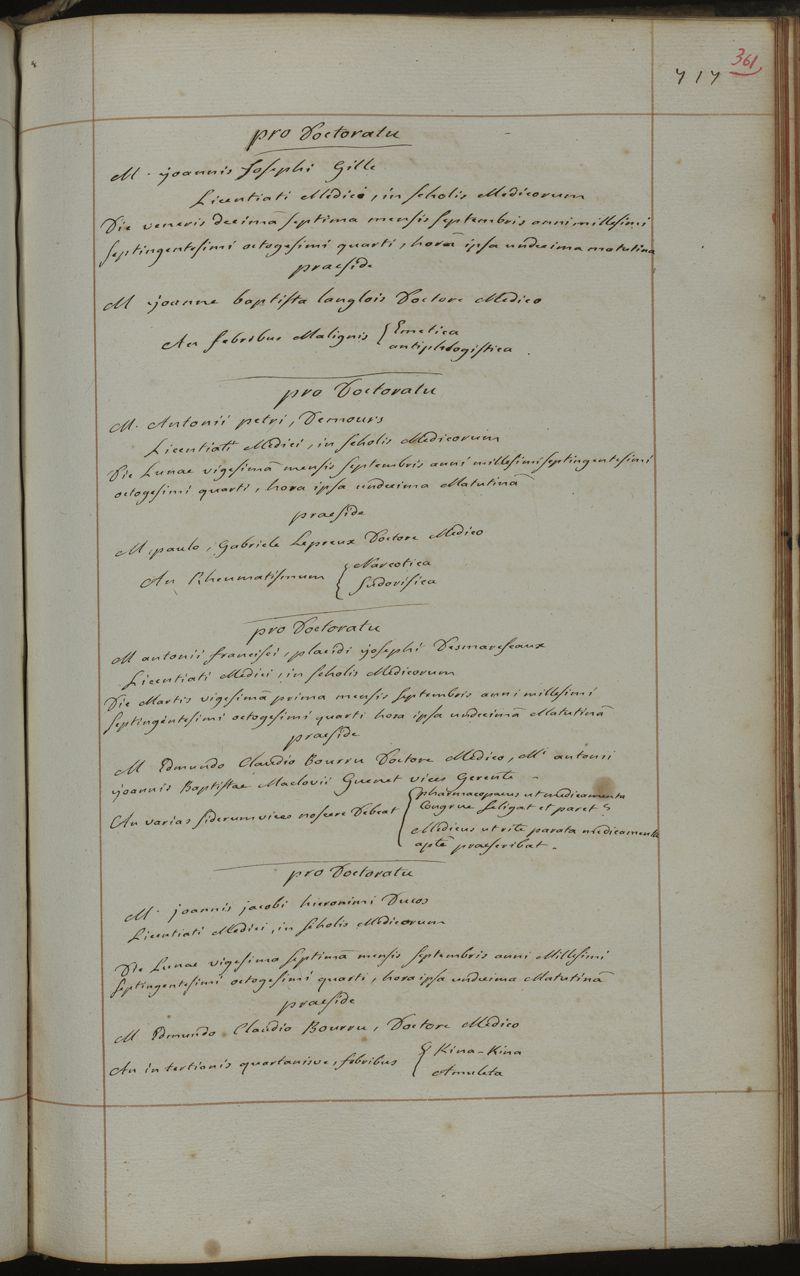 361
717
pro Doctoratu
M. joannis Josephi Gille
Licentiati Medici, in scholis Medicorum
Die veneris decimâ septima mensis septembris anni millesimi
septingentesimi octogesimi quarti, horâ ipsa undecima matutina
praeside
M joanne baptista langlois Doctore Medico
An febribus Malignis { Emetica
antiphlogistica.
pro Doctoratu
M. Antonii petri, Demours
Licentiati Medici, in scholis Medicorum
Die Lunae vigesimâ mensis septembris anni millesimi septingentesimi
octogesimi quarti, hora ipsa undecima Matutinâ
praeside
M. paulo, Gabriele Lepreux Doctore Medico
An Rheumatismum { Narcotica
Sudorifica
pro Doctoratu
M antonii francisci, placidi josephi Desmarescaux
Licentiati Medici, in scholis Medicorum
Die Martis vigesimâ prima mensis septembris anni millesimi
septingentesimi octogesimi quarti hora ipsa undecimâ Matutinâ
praeside
M Edmundo Claudio Bourru Doctore Medico, Mi antonii
joannis Baptistae Maclovii Guenet vices Gerente
An varias siderum vices noscere Debeat { pharmacopaeus ut medicamenta
Congrue seligat et paret?
Medicus ut rite parata medicamenta
aptè praescribat.
pro Doctoratu
M. joannis jacobi hieronimi Ducos
Licentiati Medici, in scholis Medicorum
Die Lunae vigesimo septimâ mensis septembris anni Millesimi
septingentesimi octogesimi quarti, hora ipsa undecima Matutinâ
praeside
M Edmundo Claudio Bourru, Doctore Medico
An in tertianis quartanisve, febribus { Kina-Kina
Amuleta